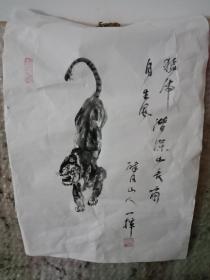 猛虎潜深山长啸
自生风
醉月山人一挥